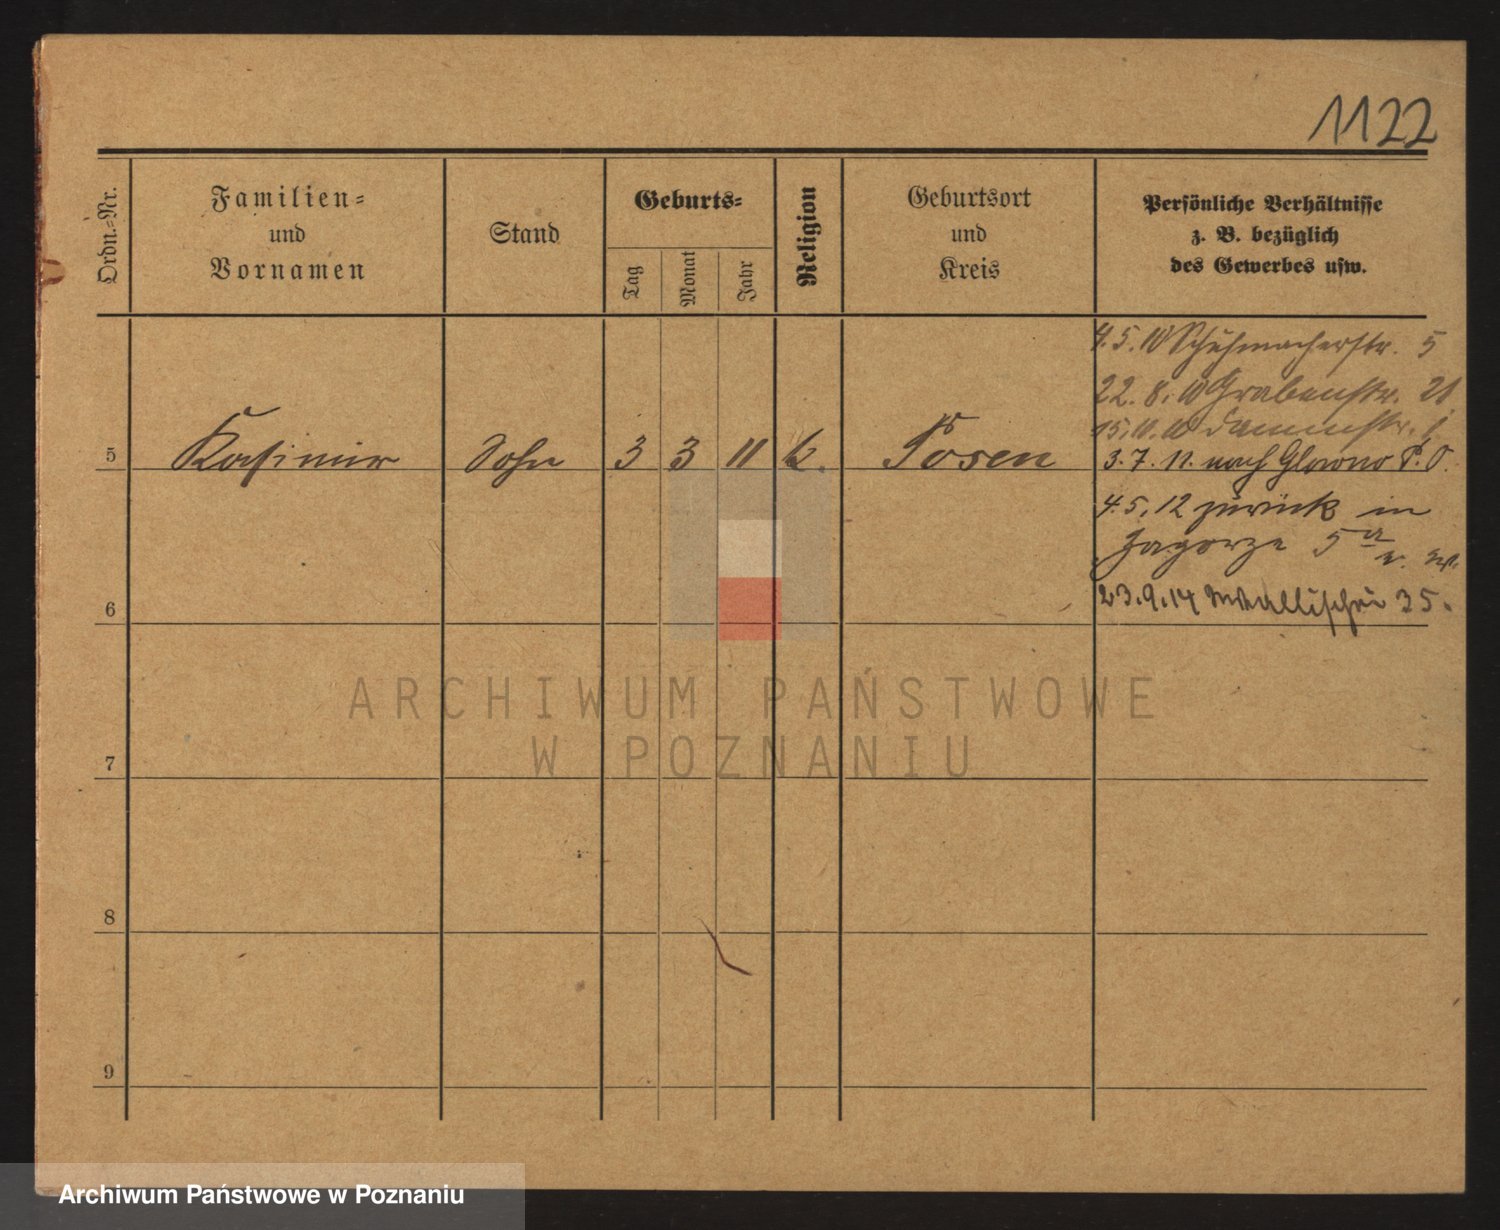 1122
Ordn.-Nr.
Familien-
und
Vornamen
Stand
Geburts-
Tag
Monat
Jahr
Religion
Geburtsort
und
Kreis
Persönliche Verhältnisse
z. B. bezüglich
des Gewerbes usw.
4.5.10 Schuhmacherstr. 5
22.8.10 Grabenstr. 21
15.11.10 Dammstr. 1
5 Kasimir Sohn 3 3 11 k. Posen 3.7.11. nach Glowno P.O.
4.5.12 zurück in
Zagorze 5a
23.9.14 Wallischei 35.
6
7
8
9
ARCHIWUM PAŃSTWOWE
W POZNANIU
Archiwum Państwowe w Poznaniu